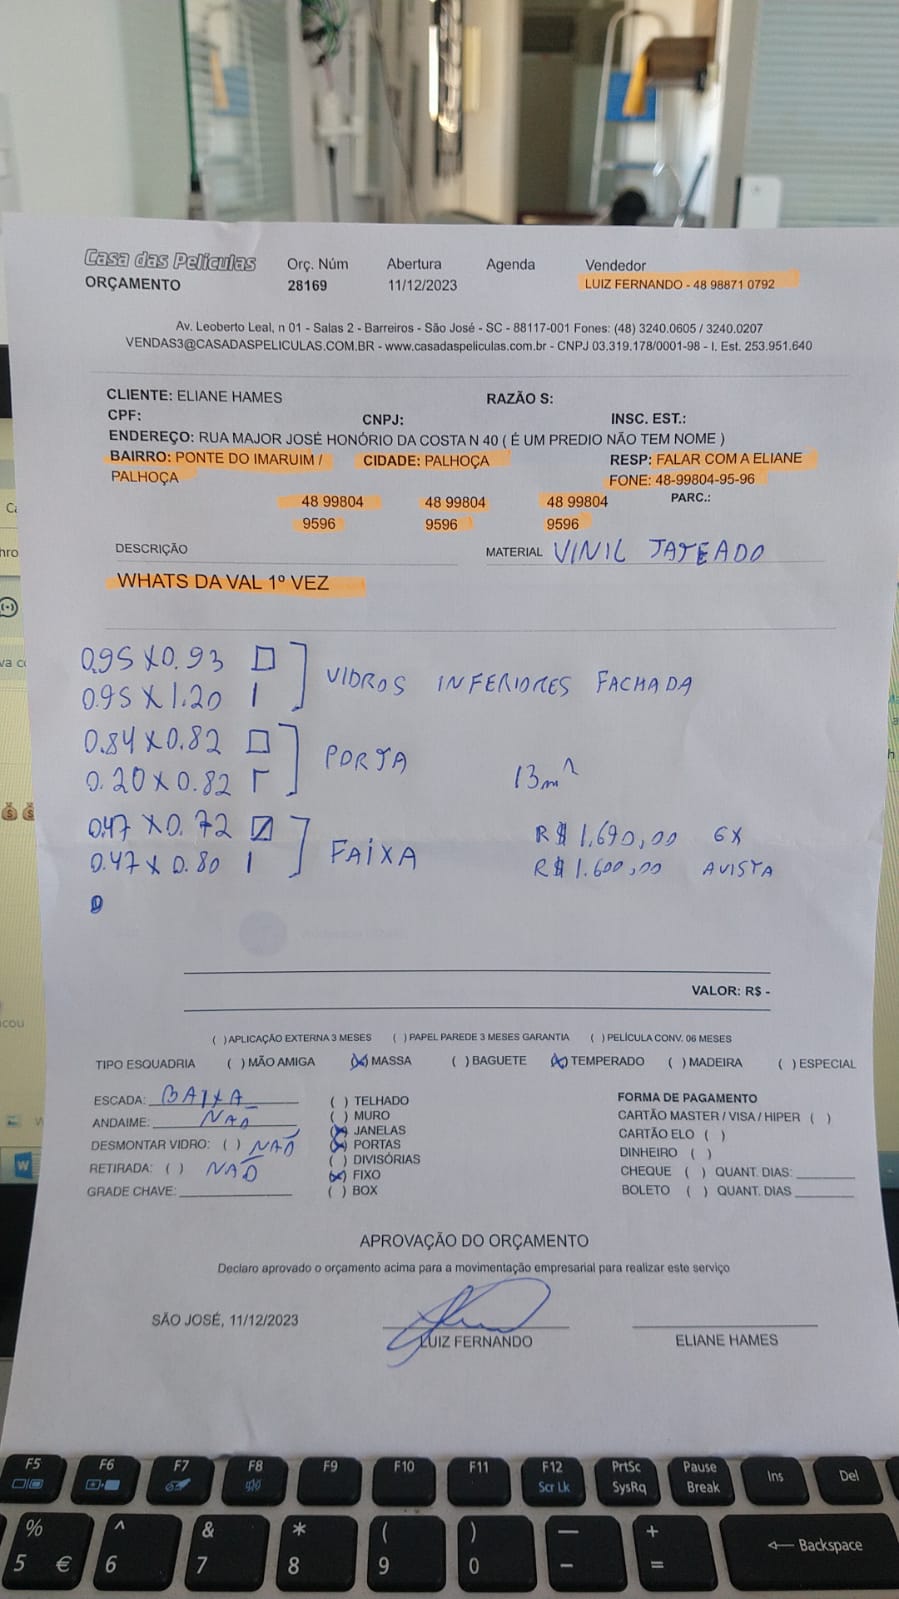 Casa das Películas
ORÇAMENTO
Orç. Núm
28169
Abertura
11/12/2023
Agenda
Vendedor
LUIZ FERNANDO - 48 98871 0792
Av. Leoberto Leal, n 01 - Salas 2 - Barreiros - São José - SC - 88117-001 Fones: (48) 3240.0605 / 3240.0207
VENDAS3@CASADASPELICULAS.COM.BR - www.casadaspeliculas.com.br - CNPJ 03.319.178/0001-98 - I. Est. 253.951.640
CLIENTE: ELIANE HAMES RAZÃO S:
CPF: CNPJ: INSC. EST.:
ENDEREÇO: RUA MAJOR JOSÉ HONÓRIO DA COSTA N 40 ( É UM PREDIO NÃO TEM NOME )
BAIRRO: PONTE DO IMARUIM / CIDADE: PALHOÇA RESP: FALAR COM A ELIANE
PALHOÇA FONE: 48-99804-95-96
48 99804 48 99804 48 99804 PARC.:
9596 9596 9596
DESCRIÇÃO MATERIAL VINIL JATEADO
WHATS DA VAL 1º VEZ
0.95 X 0.93
0.95 X 1.20
VIDROS INFERIORES FACHADA
0.84 X 0.82
0.20 X 0.82
PORTA
13m²
0.47 X 0.72
0.47 X 0.80
FAIXA
R$ 1.690,00 6X
R$ 1.600,00 AVISTA
VALOR: R$ -
( ) APLICAÇÃO EXTERNA 3 MESES ( ) PAPEL PAREDE 3 MESES GARANTIA ( ) PELÍCULA CONV. 06 MESES
TIPO ESQUADRIA ( ) MÃO AMIGA (X) MASSA ( ) BAGUETE (X) TEMPERADO ( ) MADEIRA ( ) ESPECIAL
ESCADA: BAIXA
ANDAIME: NÃO
DESMONTAR VIDRO: ( ) NÃO
RETIRADA: ( ) NÃO
GRADE CHAVE:
( ) TELHADO
( ) MURO
(X) JANELAS
(X) PORTAS
( ) DIVISÓRIAS
(X) FIXO
( ) BOX
FORMA DE PAGAMENTO
CARTÃO MASTER / VISA / HIPER ( )
CARTÃO ELO ( )
DINHEIRO ( )
CHEQUE ( ) QUANT. DIAS:
BOLETO ( ) QUANT. DIAS
APROVAÇÃO DO ORÇAMENTO
Declaro aprovado o orçamento acima para a movimentação empresarial para realizar este serviço
SÃO JOSÉ, 11/12/2023
LUIZ FERNANDO
ELIANE HAMES
F5 F6 F7 F8 F9 F10 F11 F12 PrtSc Pause Ins Del
Scr Lk SysRq Break
% ^ & * ( ) — +
5 € 6 7 8 9 0 - = Backspace